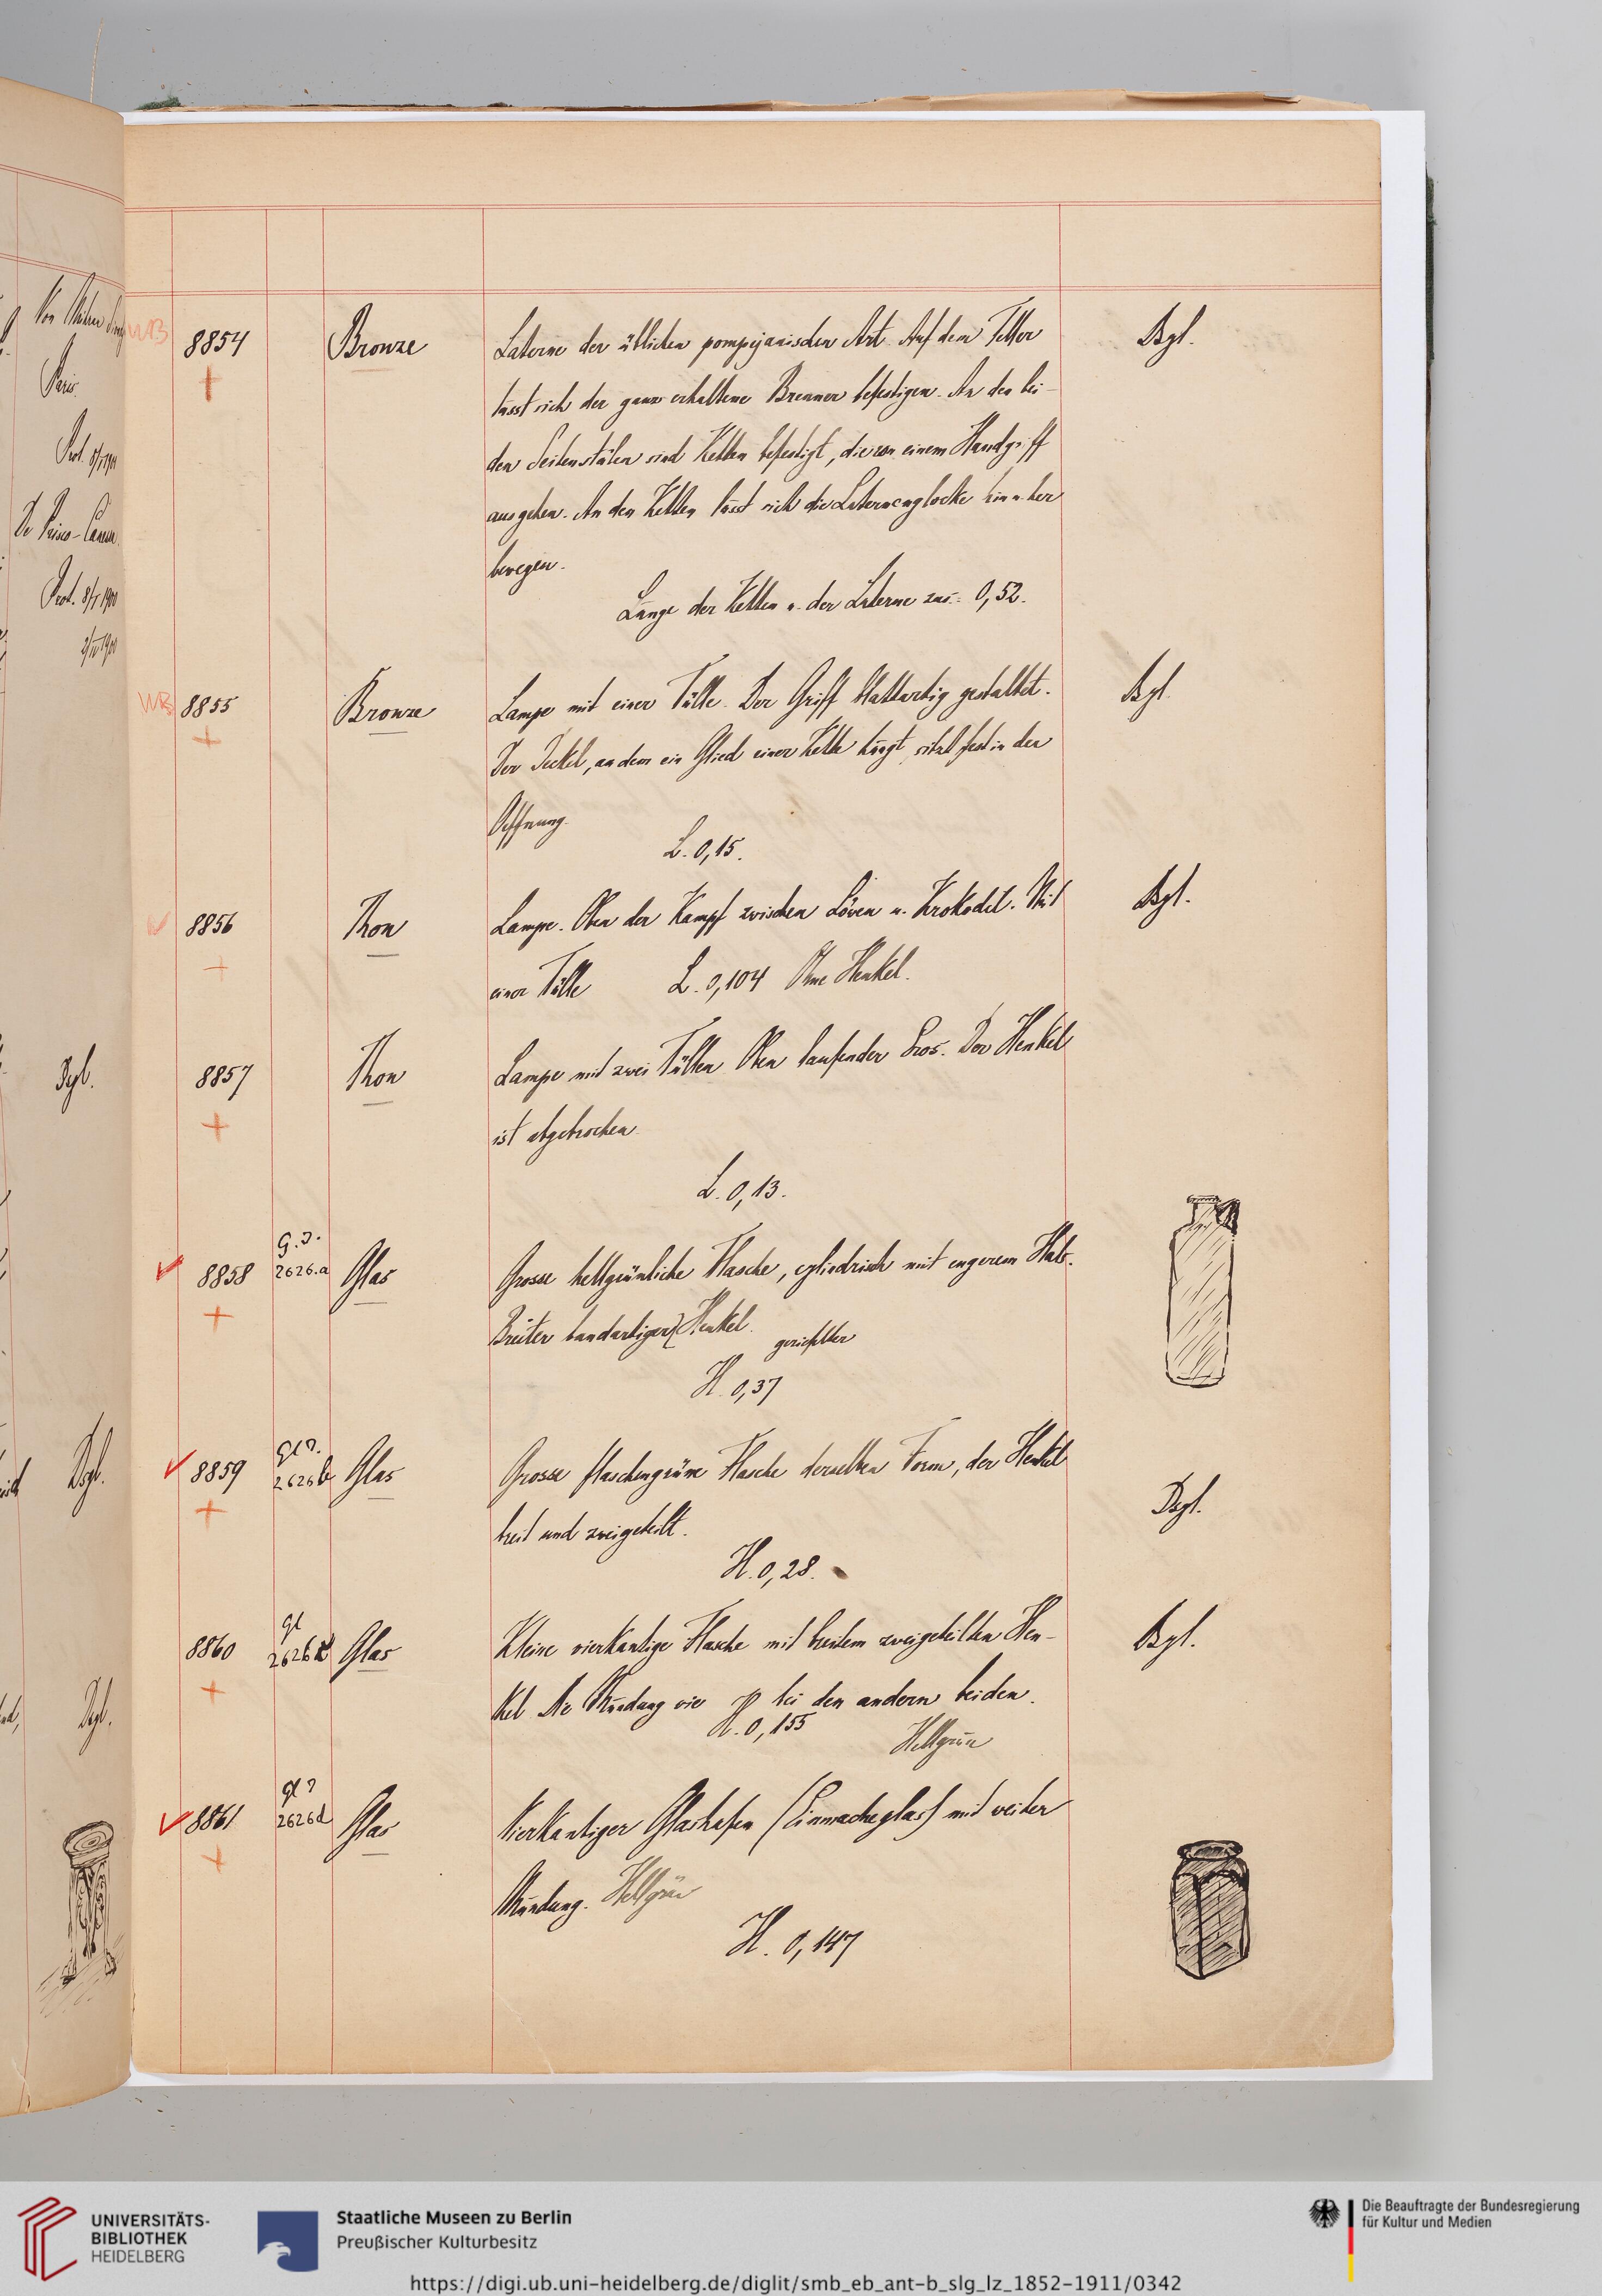 Von
Paris.
Prot. 8/I 1900
De Prisco - Canessa.
Prot. 8/I 1900
2/IV 1900
Dgl.
Dsgl.
Dsgl.
WB 8854 Bronze Laterne der üblichen pompejanischen Art. Auf dem Teller Dsgl.
lässt sich der ganz erhaltene Brenner befestigen. An den bei-
den Seitenstäben sind Ketten befestigt, die von einem Handgriff
ausgehen. An den Ketten lässt sich die Laternenglocke hin u. her
bewegen.
Länge der Ketten u. der Laterne zus.: 0,52.
WB 8855 Bronze Lampe mit einer Tülle. Der Griff blattartig gestaltet. Dsgl.
Der Deckel, an dem ein Glied einer Kette hängt, sitzt fest in der
Oeffnung.
L. 0,15.
8856 Thon Lampe. Oben der Kampf zwischen Löwen u. Krokodil. Mit Dsgl.
einer Tülle L. 0,104 Ohne Henkel.
8857 Thon Lampe mit zwei Tüllen Oben laufender Eros. Der Henkel
ist abgebrochen.
L. 0,13.
G. J.
8858 2626.a Glas Grosse hellgrünliche Flasche, cylindrisch mit engerem Hals.
Breiter bandartiger Henkel.
geriefelter
H. 0,37
8859 2626b Glas Grosse flaschengrüne Flasche derselben Form, der Henkel
breit und zweigeteilt. Dsgl.
H. 0,28.
gl
8860 2626 Glas Kleine vierkantige Flasche mit breitem zweigeteilten Hen- Dsgl.
kel. Die Mündung wie bei den andern beiden.
H. 0,155 Hellgrün
8861 2626d Glas Vierkantiger Glashafen (Einmacheglas) mit weiter
Mündung. Hellgrün
H. 0,147
UNIVERSITÄTS-
BIBLIOTHEK
HEIDELBERG
Staatliche Museen zu Berlin
Preußischer Kulturbesitz
Die Beauftragte der Bundesregierung
für Kultur und Medien
https://digi.ub.uni-heidelberg.de/diglit/smb_eb_ant-b_slg_lz_1852-1911/0342